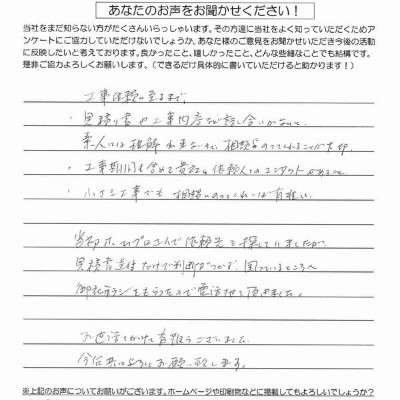 あなたのお声をお聞かせください!
当社をまだ知らない方がたくさんいらっしゃいます。その方達に当社をよく知っていただくためア
ンケートにご協力していただけないでしょうか。あなた様のご意見をお聞かせいただき今後の活動
に反映したいと考えております。良かったこと、嬉しかったこと、どんな些細なことでも結構です。
是非ご協力よろしくお願いします。(できるだけ具体的に書いていただけると助かります!)
工事依頼に至るまで、
・見積り書や工事内容など話し合いが
素人には理解出来ないので、相談にのってくれることが大切
・工事期間も含めて貴社と依頼人とのコンタクトがあること
・小さな工事でも相談にのってくれれば有難い。
当初ホームプロで依頼先を探していましたが、
見積書送付だけで判断がつかず、困っているところへ
御社チラシをもらったので電話させて頂きました。
お世話をかけて有難うございました。
今後共よろしくお願い致します。
※上記のお声についてお願いがございます。ホームページや印刷物などに掲載してもよろしいでしょうか?